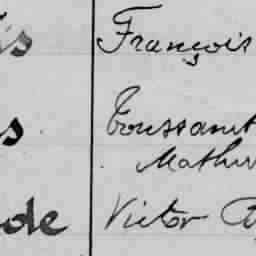 is François
s Toussaint
Mathu
de Victor